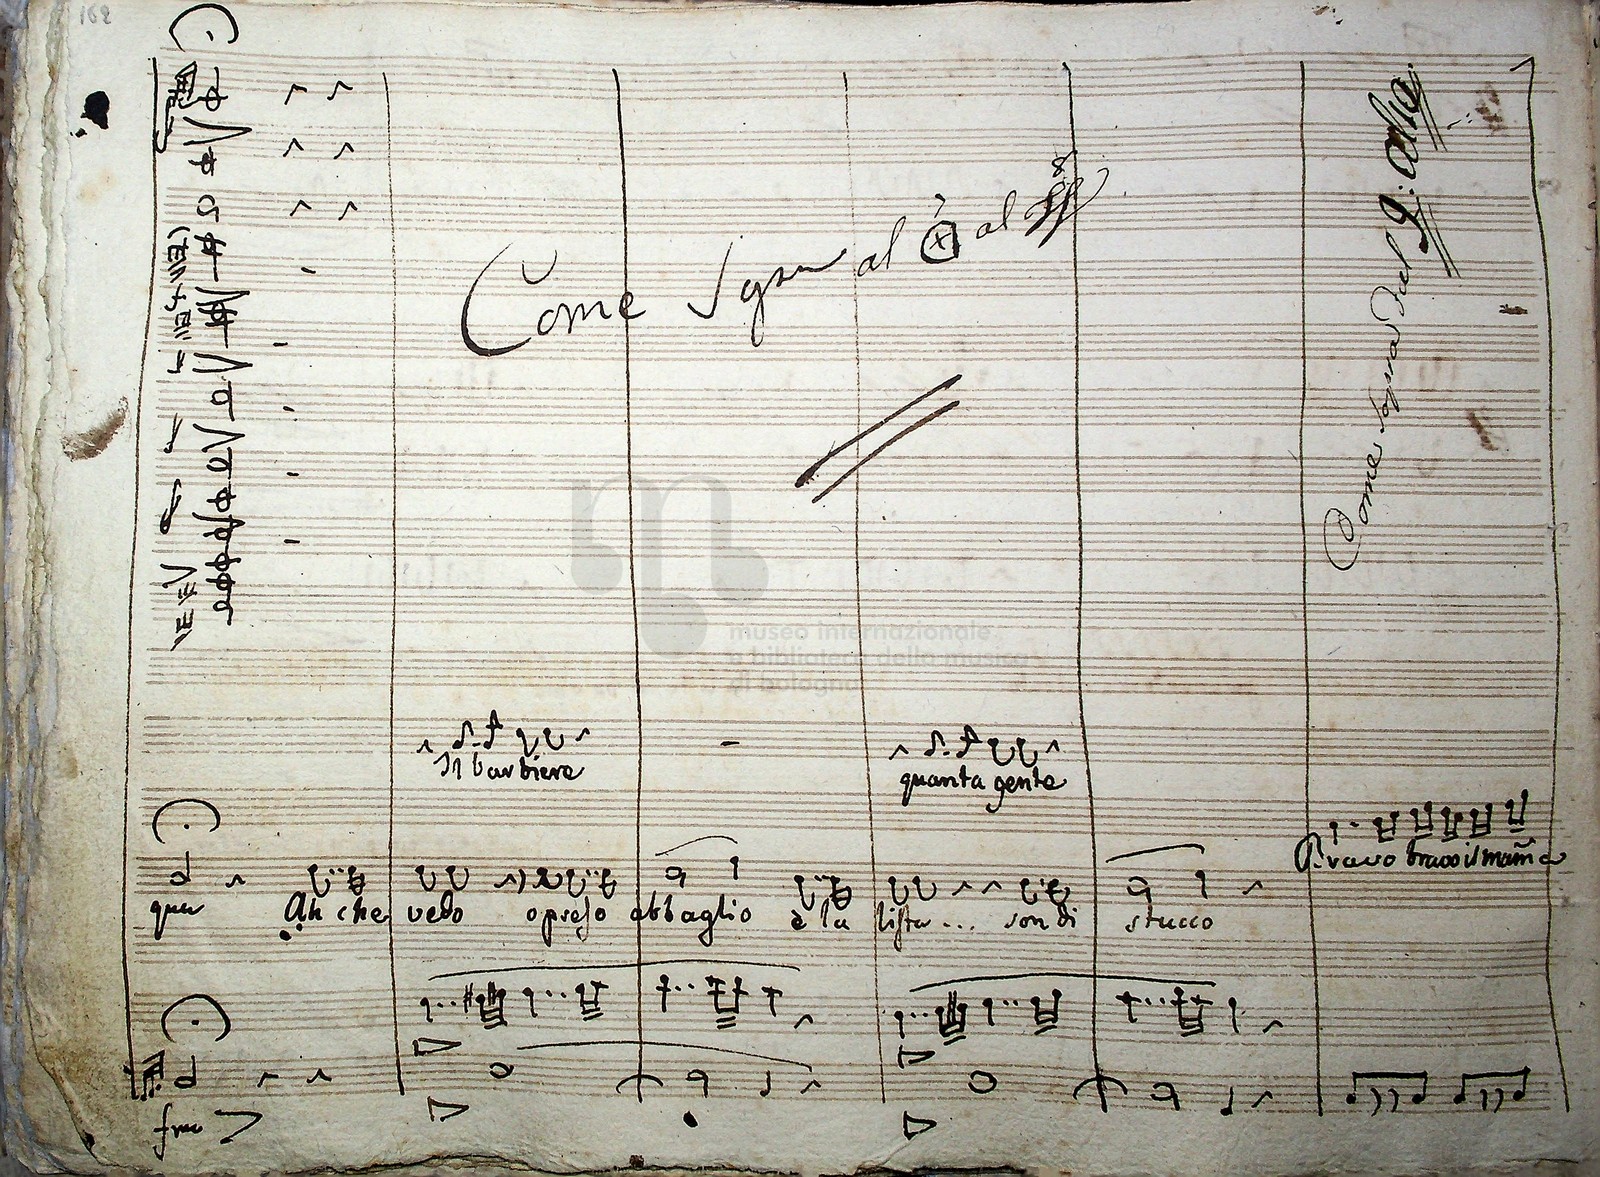 162
Come Sopra al ⊕ al
Come Sopra dal
Il barbiere
quanta gente
Bravo bravo il mam̃a
Ah che vedo o preso abbaglio è la lista... son di stucco
museo internazionale
e biblioteca della musica
di bologna